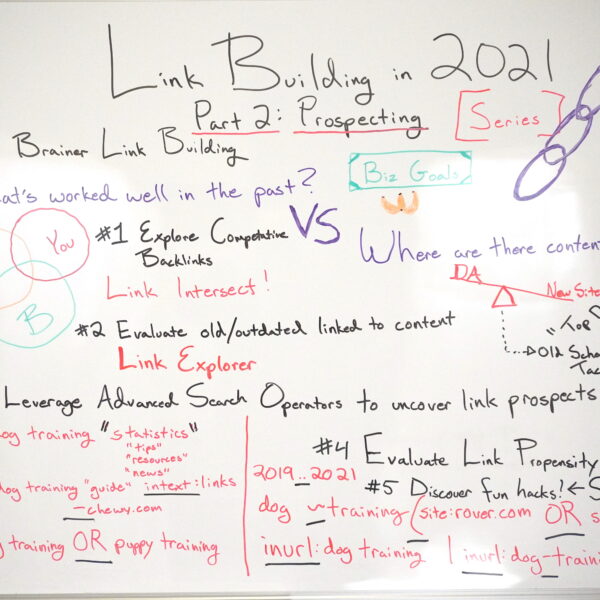 Link Building in 2021
Part 2: Prospecting
[Series]
Brainer Link Building
Biz Goals
at's worked well in the past?
VS
Where are there conten
You
B
#1 Explore Competative
Backlinks
Link Intersect!
DA
New Site
#2 Evaluate old/outdated linked to content
Link Explorer
"Top
Old Scho
Tac
Leverage Advanced Search Operators to uncover link prospects
og training "statistics"
"tips"
"resources"
"news"
dog training "guide" intext:links
-chewy.com
g training OR puppy training
#4 Evaluate Link Propensity
2019..2021
#5 Discover fun hacks! ← S
dog ~training (site:rover.com OR s
inurl:dog training | inurl:dog-traini